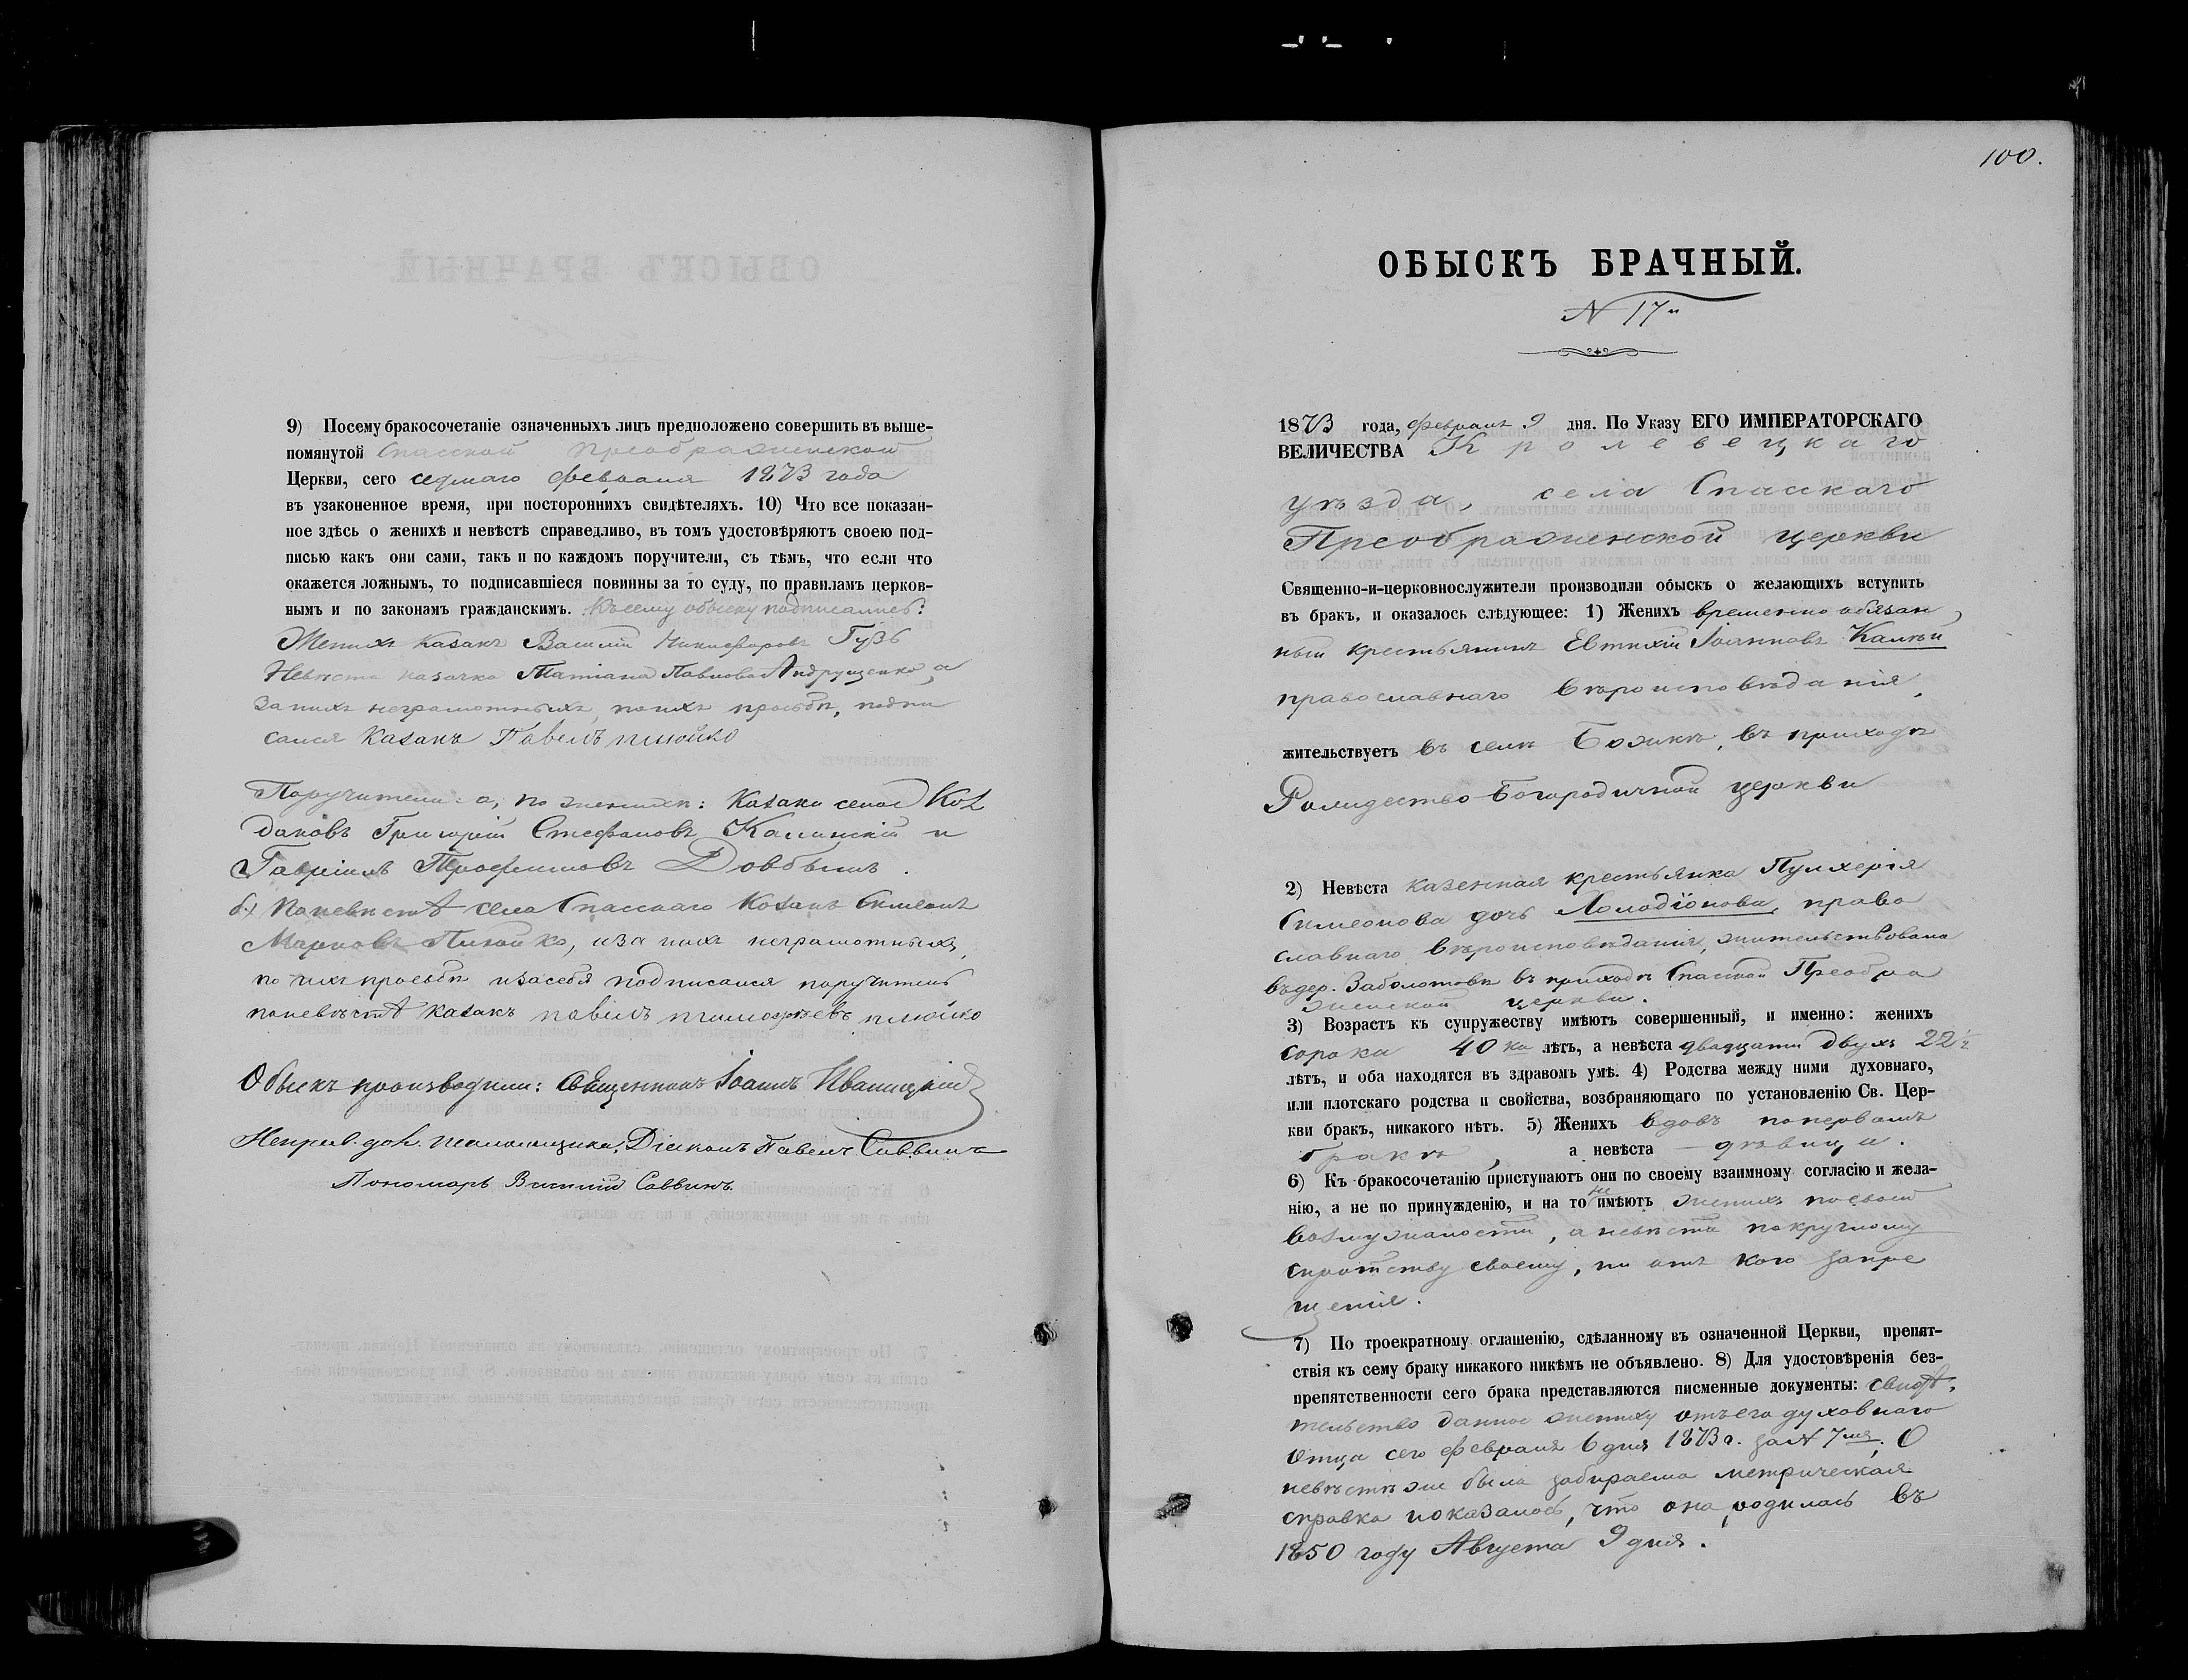 9) Посему бракосочетаніе означенныхъ лицъ предположено совершить въ выше-
помянутой Спасской Преображенской
Церкви, сего седмаго февраля 1873 года
въ узаконенное время, при постороннихъ свидѣтеляхъ. 10) Что все показан-
ное здѣсь о женихѣ и невѣстѣ справедливо, въ томъ удостовѣряютъ своею под-
писью какъ они сами, такъ и по каждомъ поручители, съ тѣмъ, что если что
окажется ложнымъ, то подписавшіеся повинны за то суду, по правиламъ церков-
нымъ и по законамъ гражданскимъ. Къ сему обыску подписались:
Женихъ казакъ Василій Никифоровъ Гузь
Невѣста казачка Татіана Павлова Андрущенко, а
за нихъ неграмотныхъ, по ихъ просьбѣ, подпи
сался казакъ Павелъ
Поручители: а, по женихѣ: Казаки села
Григорій Стефановъ Калинскій и
Гавріилъ Трофимовъ Довбышъ.
б.) По невѣстѣ села Спасскаго Козакъ Симеонъ
Марковъ, а за нихъ неграмотныхъ,
по ихъ просьбѣ и за себя подписался поручитель
по невѣстѣ казакъ павелъ
Обыскъ производили: Священникъ Іоаннъ Иваницкій
Исправ. дол. псаломщика, Діаконъ Павелъ Саввинъ
Пономарь Василій Саввинъ.
100.
ОБЫСКЪ БРАЧНЫЙ.
N 17"
1873 года, февраля 9 дня. По Указу ЕГО ИМПЕРАТОРСКАГО
ВЕЛИЧЕСТВА Кролевецкаго
уѣзда, села Спасскаго
Преображенской церкви
Священно-и-церковнослужители производили обыскъ о желающихъ вступить
въ бракъ, и оказалось слѣдующее: 1) Женихъ временно обязан
ный крестьянинъ Евтихій Іоанновъ Калѣй
православнаго вѣроисповѣданія,
жительствуетъ въ селѣ Божкѣ, въ приходѣ
Рождество-Богородичной церкви
2) Невѣста казенная крестьянка Пулхерія
Симеонова дочь Холодіонова, право
славнаго вѣроисповѣданія, жительствовала
въ дер. Заболотовѣ въ приходѣ Спасской Преобра
женской церкви.
3) Возрастъ къ супружеству имѣютъ совершенный, и именно: женихъ
сорока 40 ка лѣтъ, а невѣста двадцати двухъ 22 ½
лѣтъ, и оба находятся въ здравомъ умѣ. 4) Родства между ними духовнаго,
или плотскаго родства и свойства, возбраняющаго по установленію Св. Цер-
кви бракъ, никакого нѣтъ. 5) Женихъ вдовъ по первомъ
бракѣ, а невѣста – дѣвица.
6) Къ бракосочетанію приступаютъ они по своему взаимному согласію и жела-
нію, а не по принужденію, и на то не имѣютъ женихъ по своей
возмужалости, а невѣста по круглому
сиротству своему, ни отъ кого запре
щенія.
7) По троекратному оглашенію, сдѣланному въ означенной Церкви, препят-
ствія къ сему браку никакого никѣмъ не объявлено. 8) Для удостовѣренія без-
препятственности сего брака представляются писменные документы: свидѣ-
тельство данное жениху отъ его духовнаго
отца сего февраля 6 дня 1873 г. за N 7мъ. О
невѣстѣ же была забираема метрическая
справка и оказалось, что она родилась въ
1850 году Августа 9 дня.